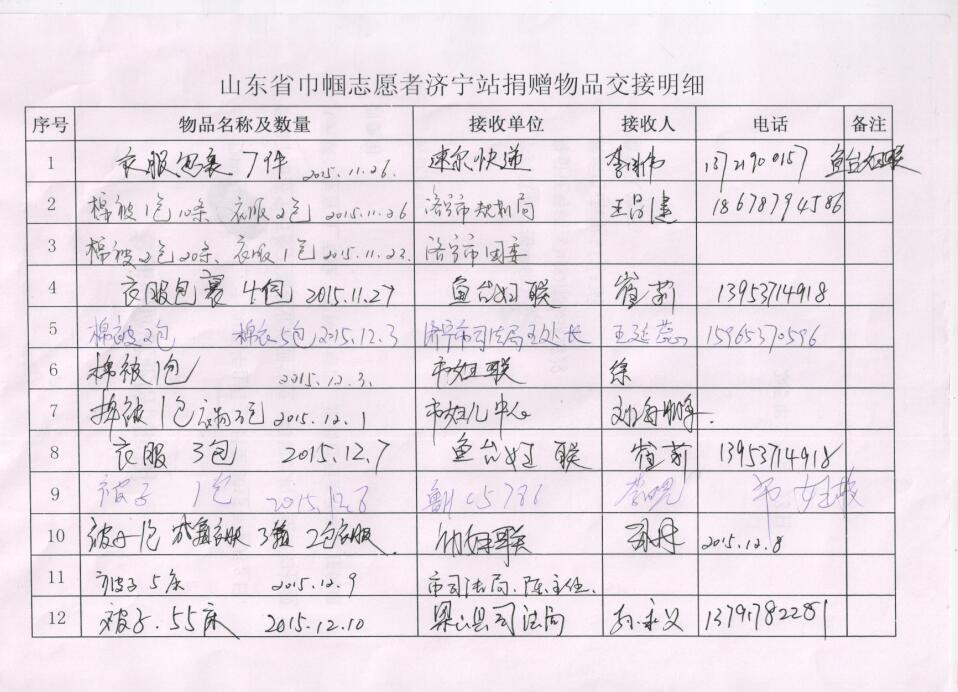 山东省巾帼志愿者济宁站捐赠物品交接明细
序号 物品名称及数量 接收单位 接收人 电话 备注
1 衣服包裹 7件 2015.11.26. 速尔快递 鱼台妇联
2 棉被1包10条 衣服2包 2015.11.26 济宁市 18678794586
3 棉被2包20条、衣服1包 2015.11.23. 济宁市团委
4 衣服包裹 4包 2015.11.27 鱼台妇联 崔莉 13953714918
5 棉被2包 棉衣5包 2015.12.3 济宁市司法局王处长 王延蕊 15965370596
6 棉被1包 2015.12.3. 市妇联 徐
7 棉被1包 2015.12.1 市妇儿中心
8 衣服 3包 2015.12.7 鱼台妇联 崔莉 13953714918
9 被子 1包 2015.12.8 市妇联
10 被子1包 2包衣服. 妇联 2015.12.8
11 被子5床 2015.12.9 市司法局.陈主任.
12 被子.55床 2015.12.10 梁山县司法局 孙永义 13791782281